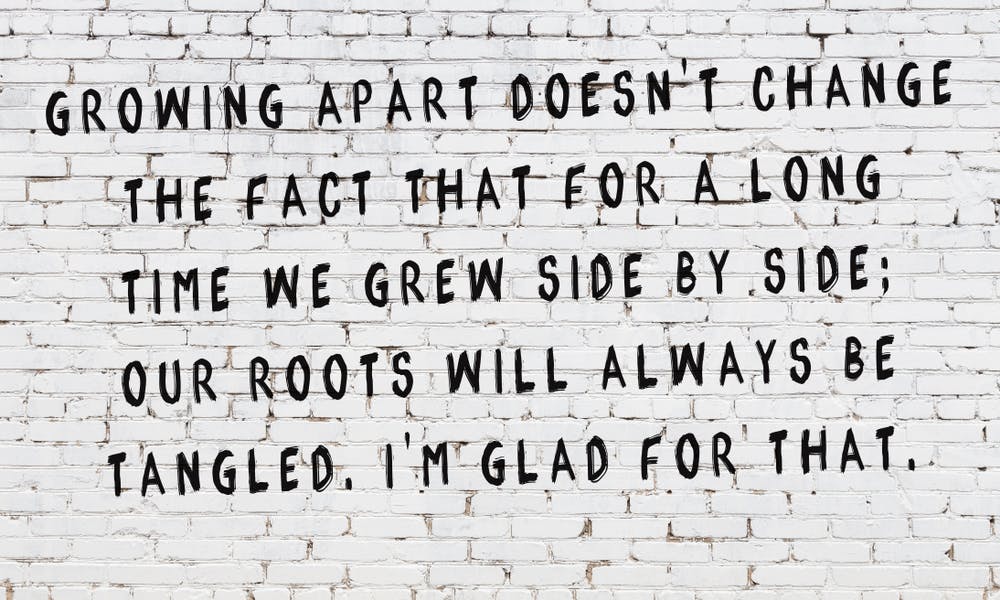 GROWING APART DOESN'T CHANGE
THE FACT THAT FOR A LONG
TIME WE GREW SIDE BY SIDE;
OUR ROOTS WILL ALWAYS BE
TANGLED. I'M GLAD FOR THAT.